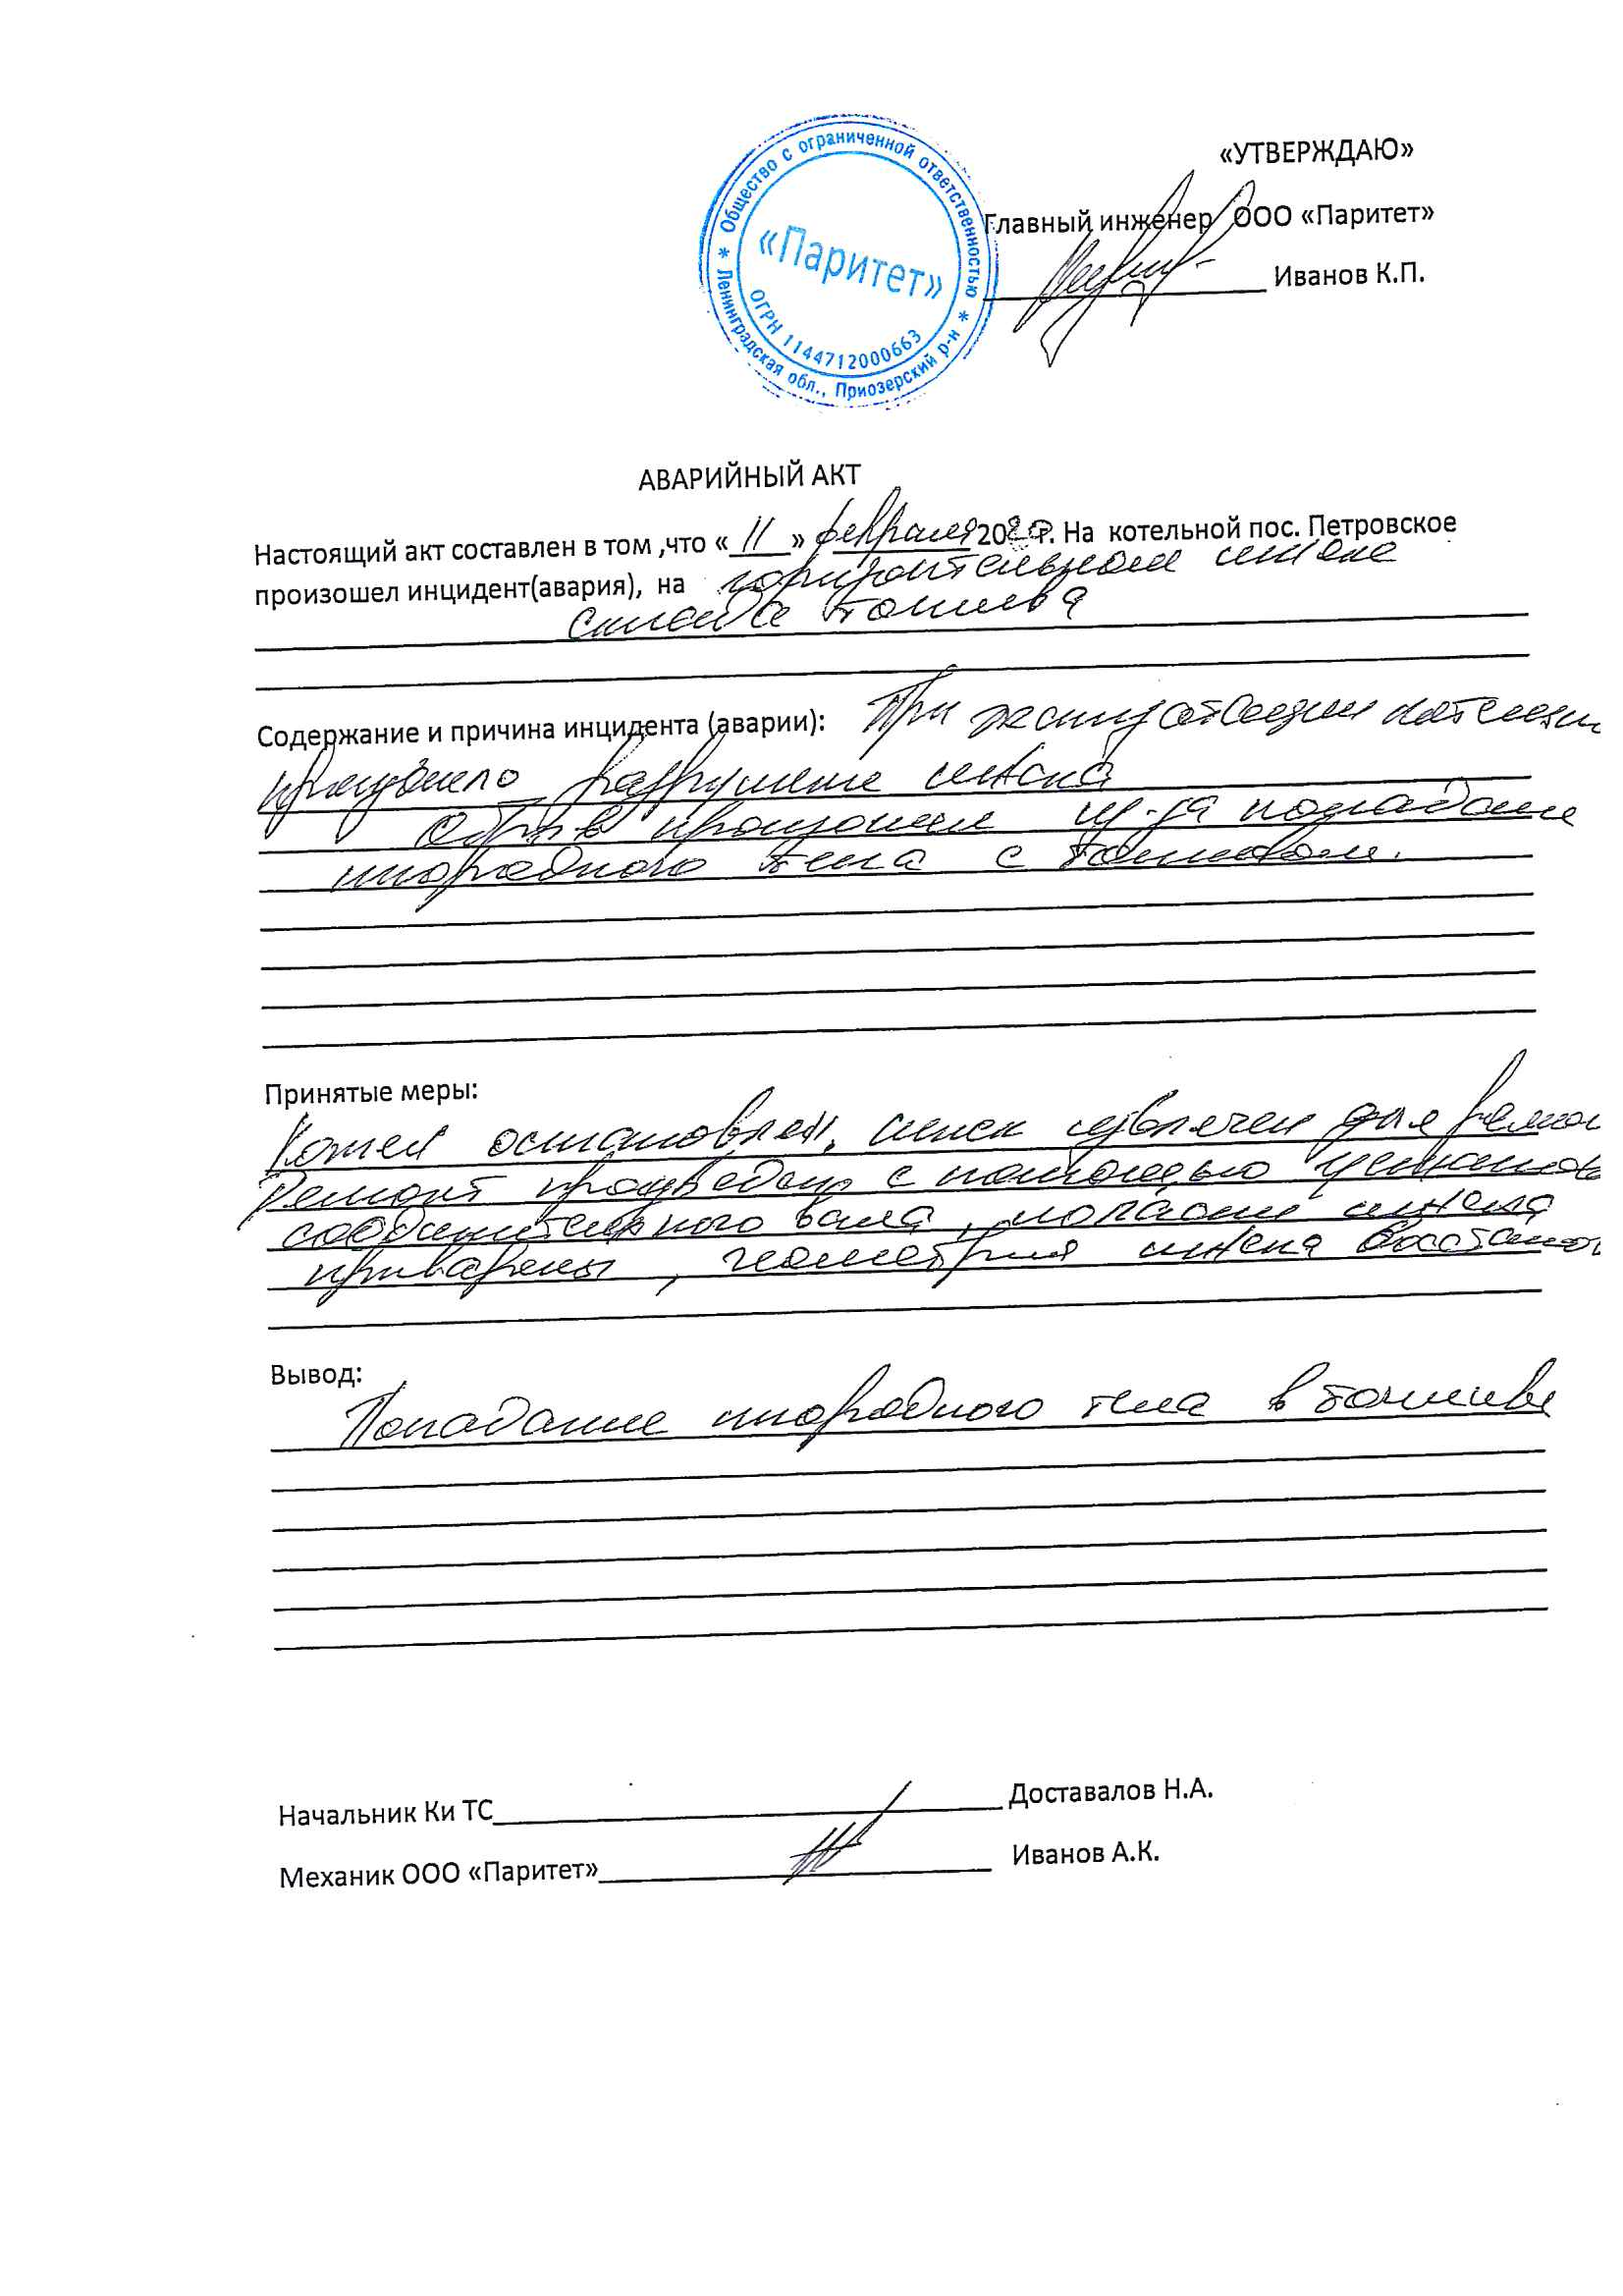 «УТВЕРЖДАЮ»
Общество с ограниченной ответственностью
Ленинградская обл., Приозерский р-н
«Паритет»
ОГРН 1144712000663
Главный инженер ООО «Паритет»
Иванов К.П.
АВАРИЙНЫЙ АКТ
Настоящий акт составлен в том ,что «11» февраля 202 г. На котельной пос. Петровское
произошел инцидент(авария), на горизонтальном шнеке
склада топлива
Содержание и причина инцидента (аварии): При эксплуатации котельной
произошло разрушение шнека
Обрыв произошел из-за попадание
инородного тела с топливом.
Принятые меры:
Котел остановлен, шнек извлечен для
Ремонт произведен с помощью
соединительного вала, лопасти шнека
приварены, геометрия шнека
Вывод:
Попадание инородного тела в топливе
Начальник Ки ТС Доставалов Н.А.
Механик ООО «Паритет» Иванов А.К.